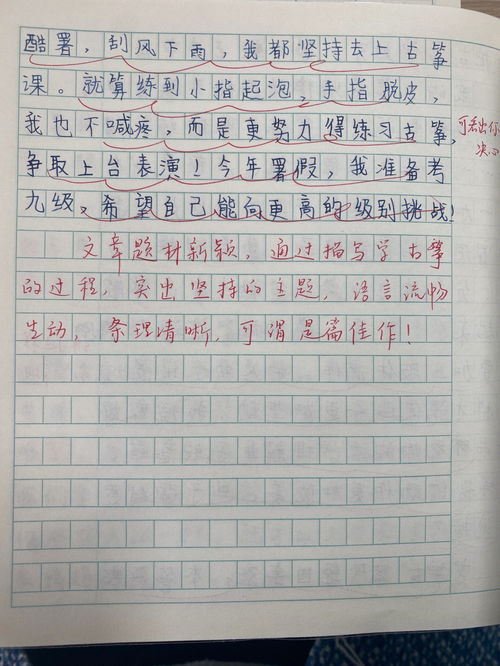 酷署，刮风下雨，我都坚持去上古筝
课。就算练到小指起泡，手指脱皮，
我也不喊疼，而是更努力得练习古筝，
可看出你
决心
争取上台表演！今年署假，我准备考
九级，希望自己能向更高的级别挑战！
文章题材新颖，通过描写学古筝
的过程，突出坚持的主题，语言流畅
生动，条理清晰，可谓是篇佳作！